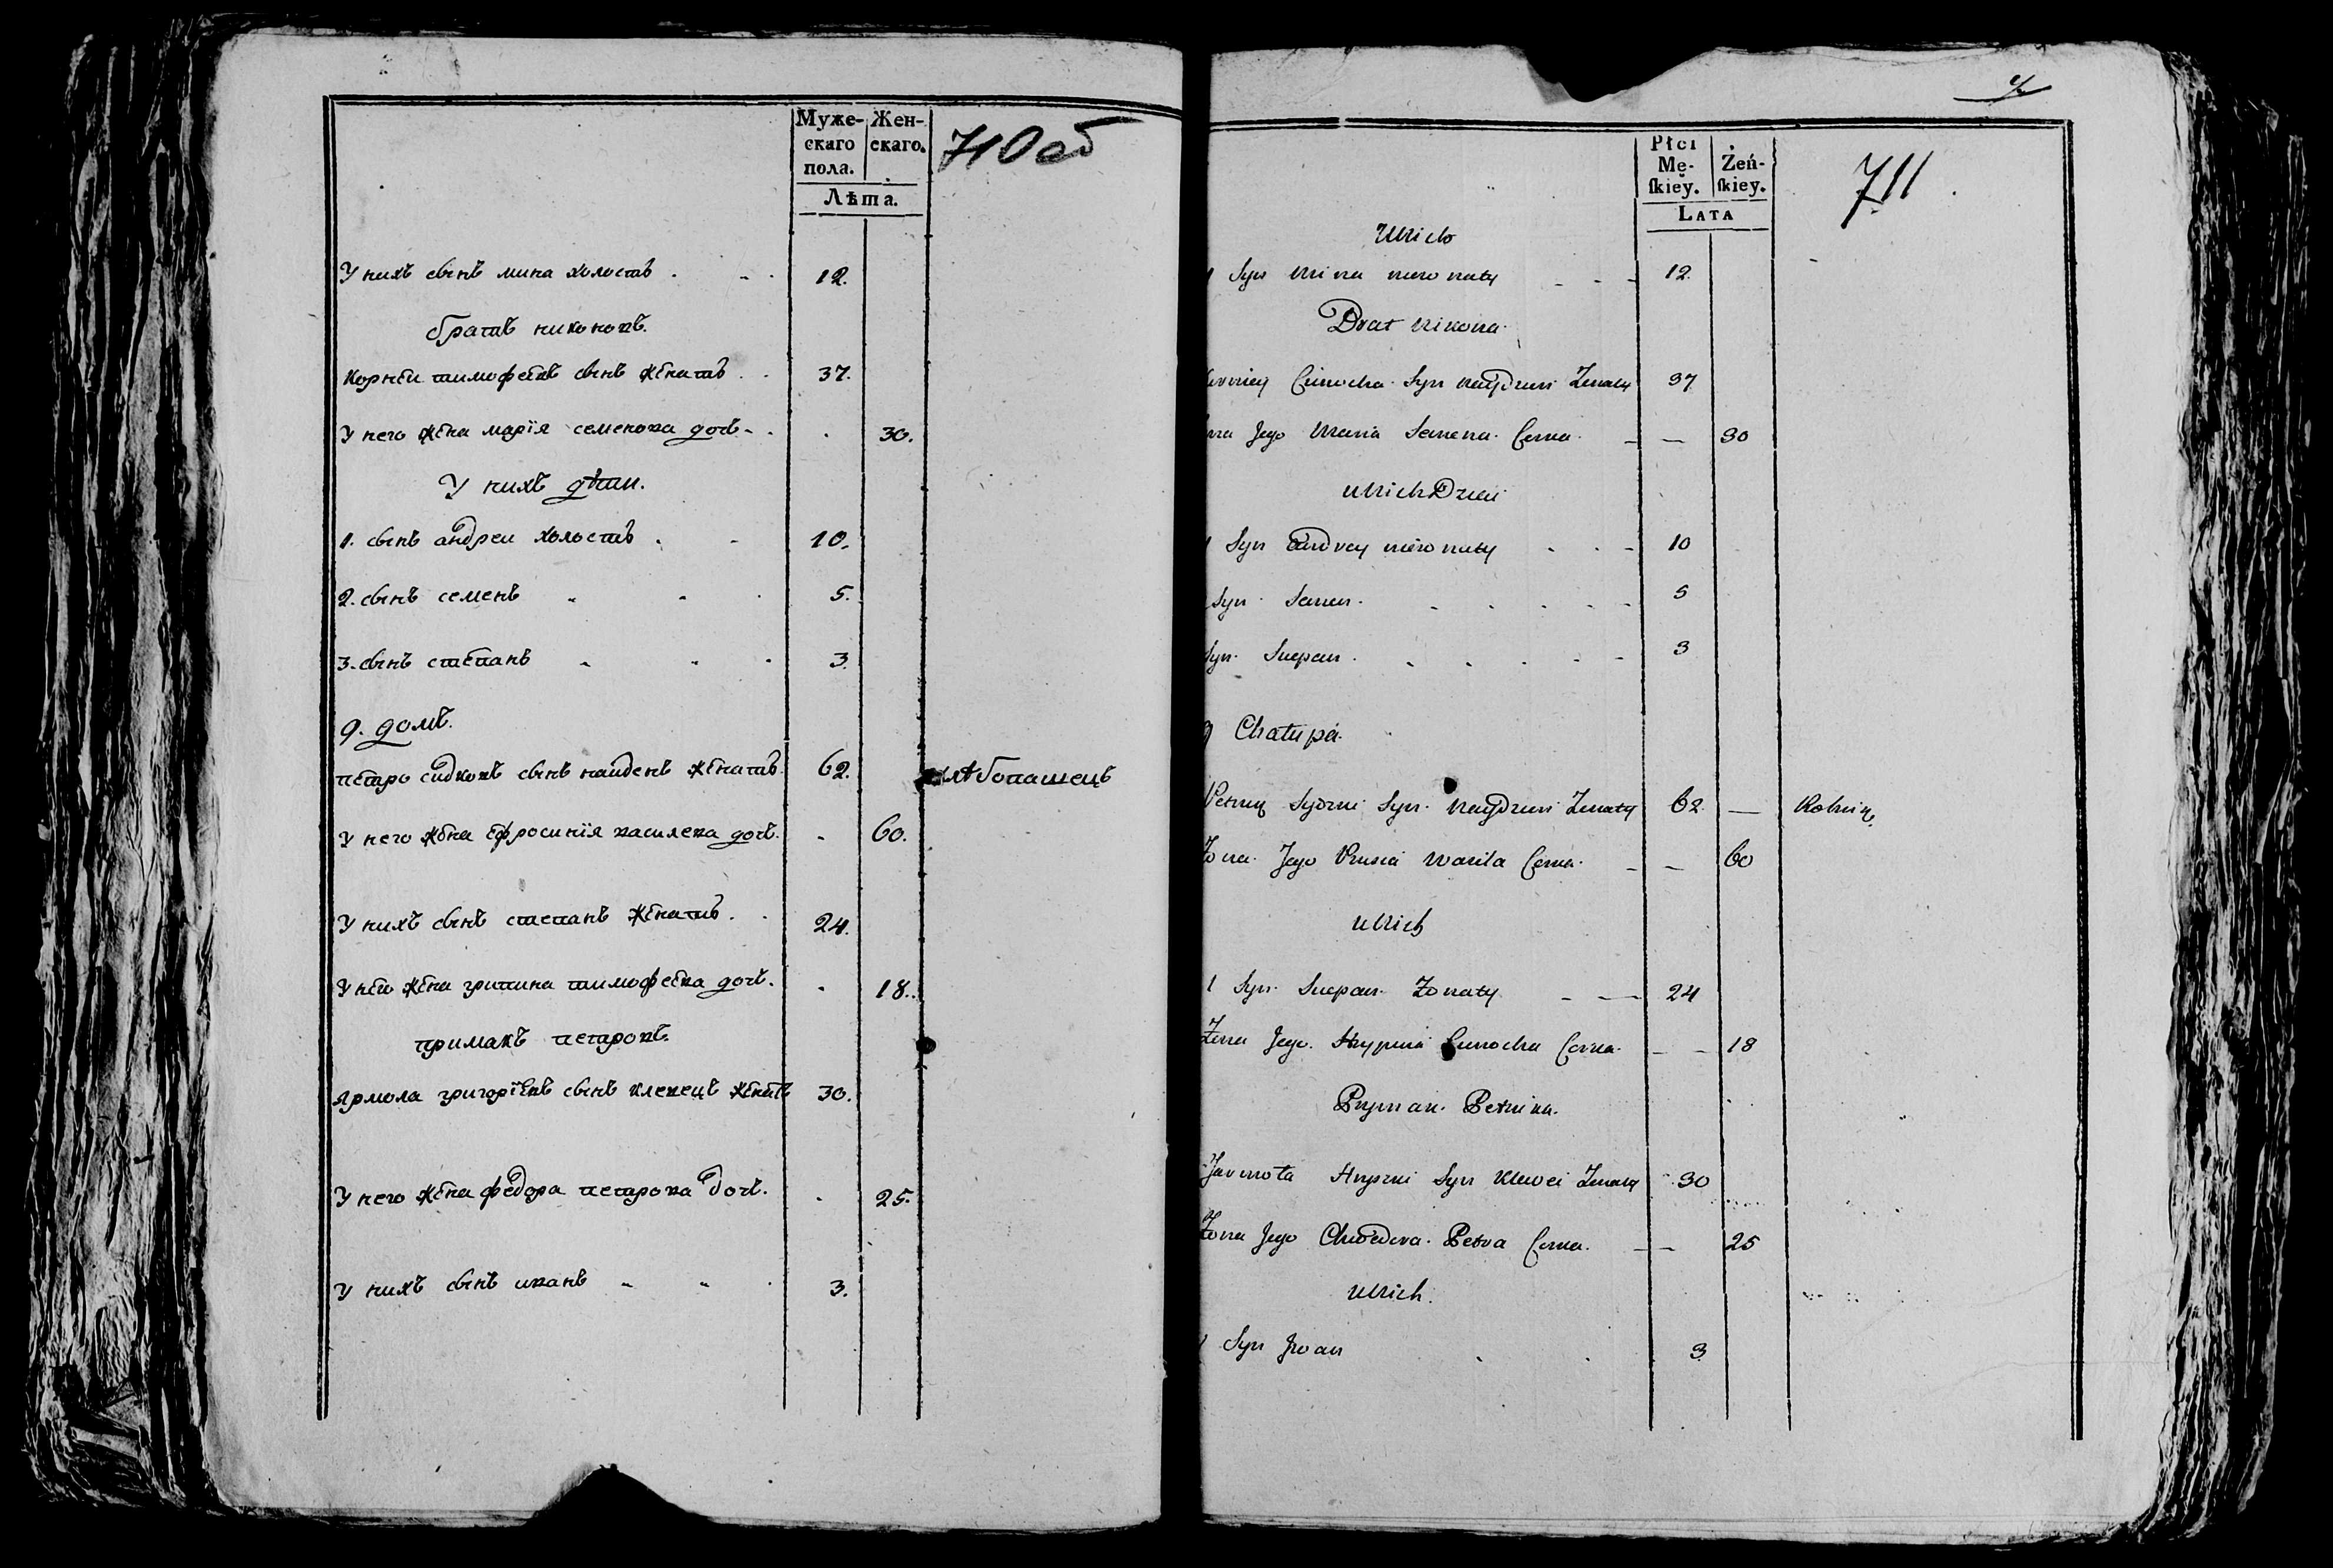 Муже- Жен-
скаго скаго.
пола.
Лѣта.
710 об
У нихъ сынъ мина холостъ 12.
братъ никоновъ.
корнеи тимофеевъ сынъ женатъ 37.
У него жена марїя семенова дочь 30.
У нихъ дѣти.
1. сынъ андреи холостъ 10.
2. сынъ семенъ 5.
3. сынъ степанъ 3.
9. домъ.
петро сидковъ сынъ наиденъ женатъ 62. хлѣбопашецъ
У него жена ефросинїя василева дочь. 60.
У нихъ сынъ степанъ женатъ 24.
У него жена грипина тимофеева дочь. 18.
примакъ петровъ.
ярмола григорїевъ сынъ клевецъ женатъ 30.
У него жена федора петрова дочь. 25.
У нихъ сынъ иванъ 3.
Płci
Mę- Żeń-
ſkiey. ſkiey.
LATA
711
U Nich
1 Syn Mina nieżonaty 12.
Brat Nikona
Cimocha Syn Nayden Żonaty 37
Jego Maria Semena Corka 30
u Nich Dzieci
1 Syn Andrey nieżonaty 10
Syn Semen 5
Syn Sciepan 3
9 Chałupa
Petruk Syn Nayden Żonaty 62 — Rolnik
Żona Jego Prusia Wasila Corka 60
u Nich
1 Syn Sciepan Żonaty 24
Żona Jego Hrypina Cimocha Corka 18
Pryman Petruka
Jarmoła Syn Klewei Żonaty 30
Żona Jego Chwedora Petra Corka 25
u Nich
1 Syn Jwan 3